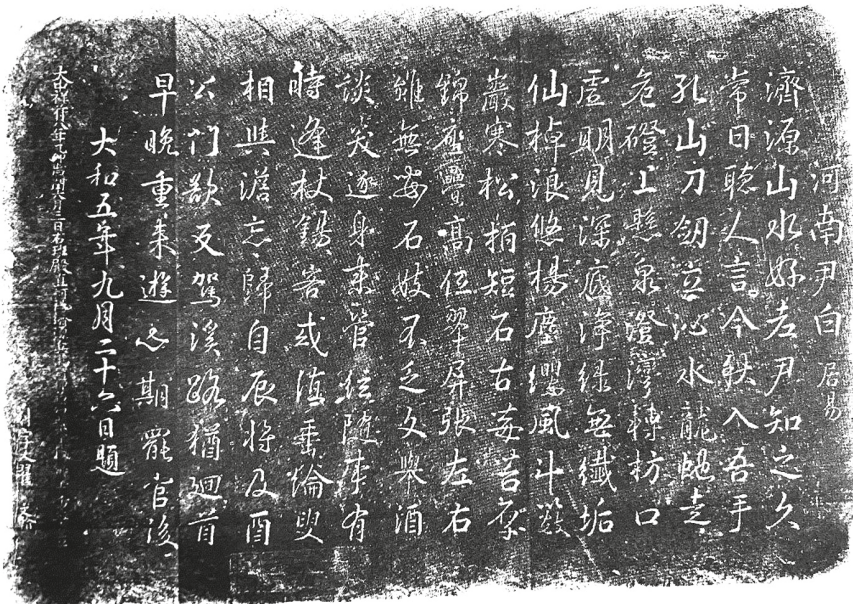 河南尹白居易
濟源山水好老尹知之久
常日聽人言今秋入吾手
孔山刀劒立沁水龍虵走
危磴上懸泉澄灣轉枋口
虛明見深底淨綠無纖垢
仙棹浪悠楊塵纓風斗藪
巖寒松柏短石古莓苔厚
錦座高低翠屏張左右
雖無安石妓不乏文舉酒
談笑逐身來管絃隨事有
時逢杖錫客或值垂綸叟
相與澹忘歸自辰將及酉
公門欲反駕溪路猶廻首
早晚重來遊心期罷官後
大和五年九月二十六日題